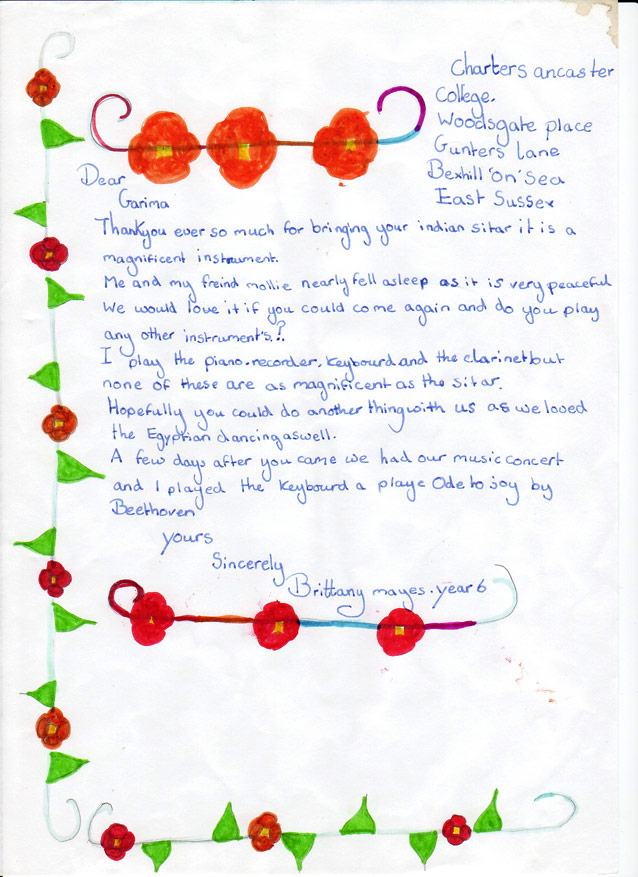 Charters ancaster
College.
Woodsgate place
Gunters lane
Bexhill 'on' Sea
East Sussex
Dear
Garima
Thankyou ever so much for bringing your indian sitar it is a
magnificent instrument.
Me and my freind mollie nearly fell asleep as it is very peaceful
We would love it if you could come again and do you play
any other instrument's!?
I play the piano.recorder.Keybourd and the clarinet but
none of these are as magnificent as the sitar.
Hopefully you could do another thing with us as we loved
the Egyptian dancing aswell.
A few days after you came we had our music concert
and I played the Keybourd a playe Ode to joy by
Beethoven
yours
Sincerely
Brittany mayes.year 6